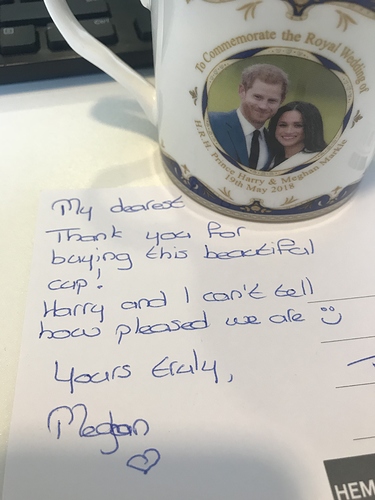 To Commemorate the Royal Wedding of
H.R.H. Prince Harry & Meghan Markle
19th May 2018
My dearest
Thank you for
buying this beautiful
cup!
Harry and I can't tell
how pleased we are
Yours truly,
Meghan
HEM